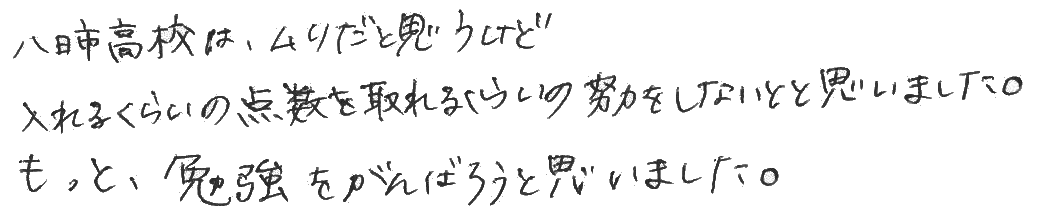 八日市高校は、ムリだと思うけど
入れるくらいの点数を取れるくらいの努力をしないとと思いました。
もっと、勉強をがんばろうと思いました。